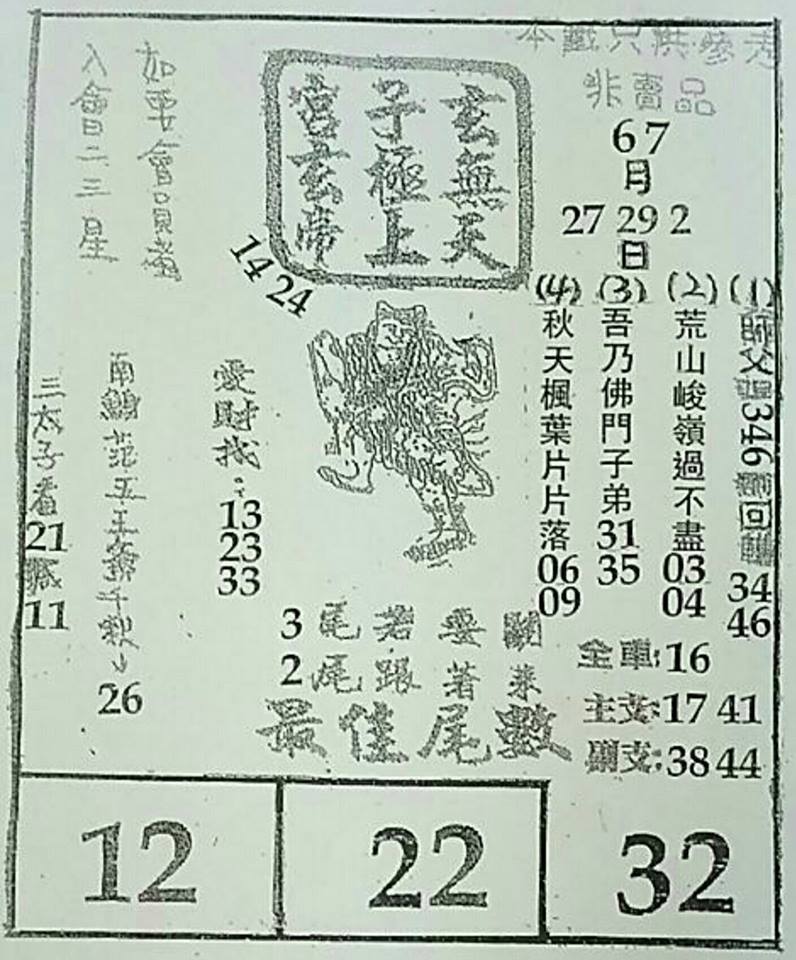 本籤只供參考
非賣品
67
月
27 29 2
日
(1)
346
回
34
46
(2)
荒山峻嶺過不盡
03
04
(3)
吾乃佛門子弟
31
35
(4)
秋天楓葉片片落
06
09
玄無天
子極上
宮玄帝
14 24
如要會員者
入會二三星
愛財找:
13
23
33
南鯤范五王爺千
26
三太子看
21
11
3尾若要
2尾跟著來
最佳尾數
全車:16
主支:17 41
38 44
12
22
32